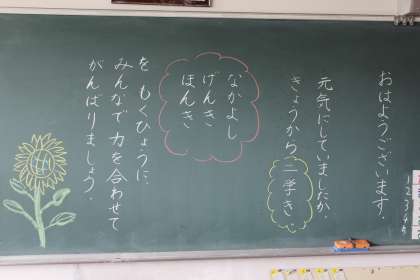 おはようございます。
元気にしていましたか。
きょうから二学き
なかよし
げんき
ほんき
を もくひょうに、
みんなで力を合わせて
がんばりましょう。
1
2
3
4
5